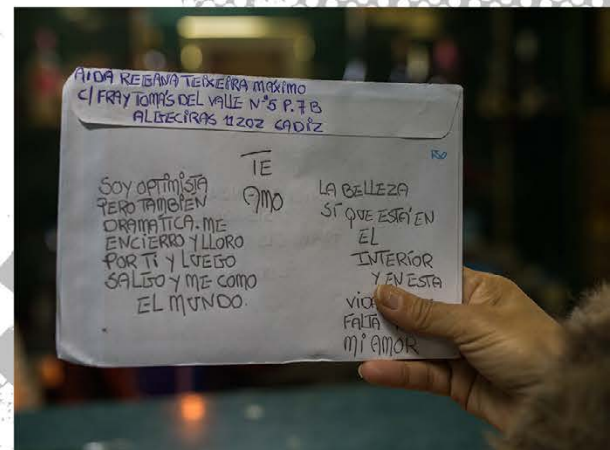 AIDA REGANA TEIXEIRA MÁXIMO
C/ FRAY TOMÁS DEL VALLE Nº5 P.7B
ALGECIRAS 11202 CADIZ
TE
AMO
SOY OPTIMISTA
PERO TAMBIEN
DRAMATICA. ME
ENCIERRO Y LLORO
POR TI Y LUEGO
SALGO Y ME COMO
EL MUNDO.
LA BELLEZA
SÍ QUE ESTÁ EN
EL
INTERIOR
Y EN ESTA
FALTA
MI AMOR